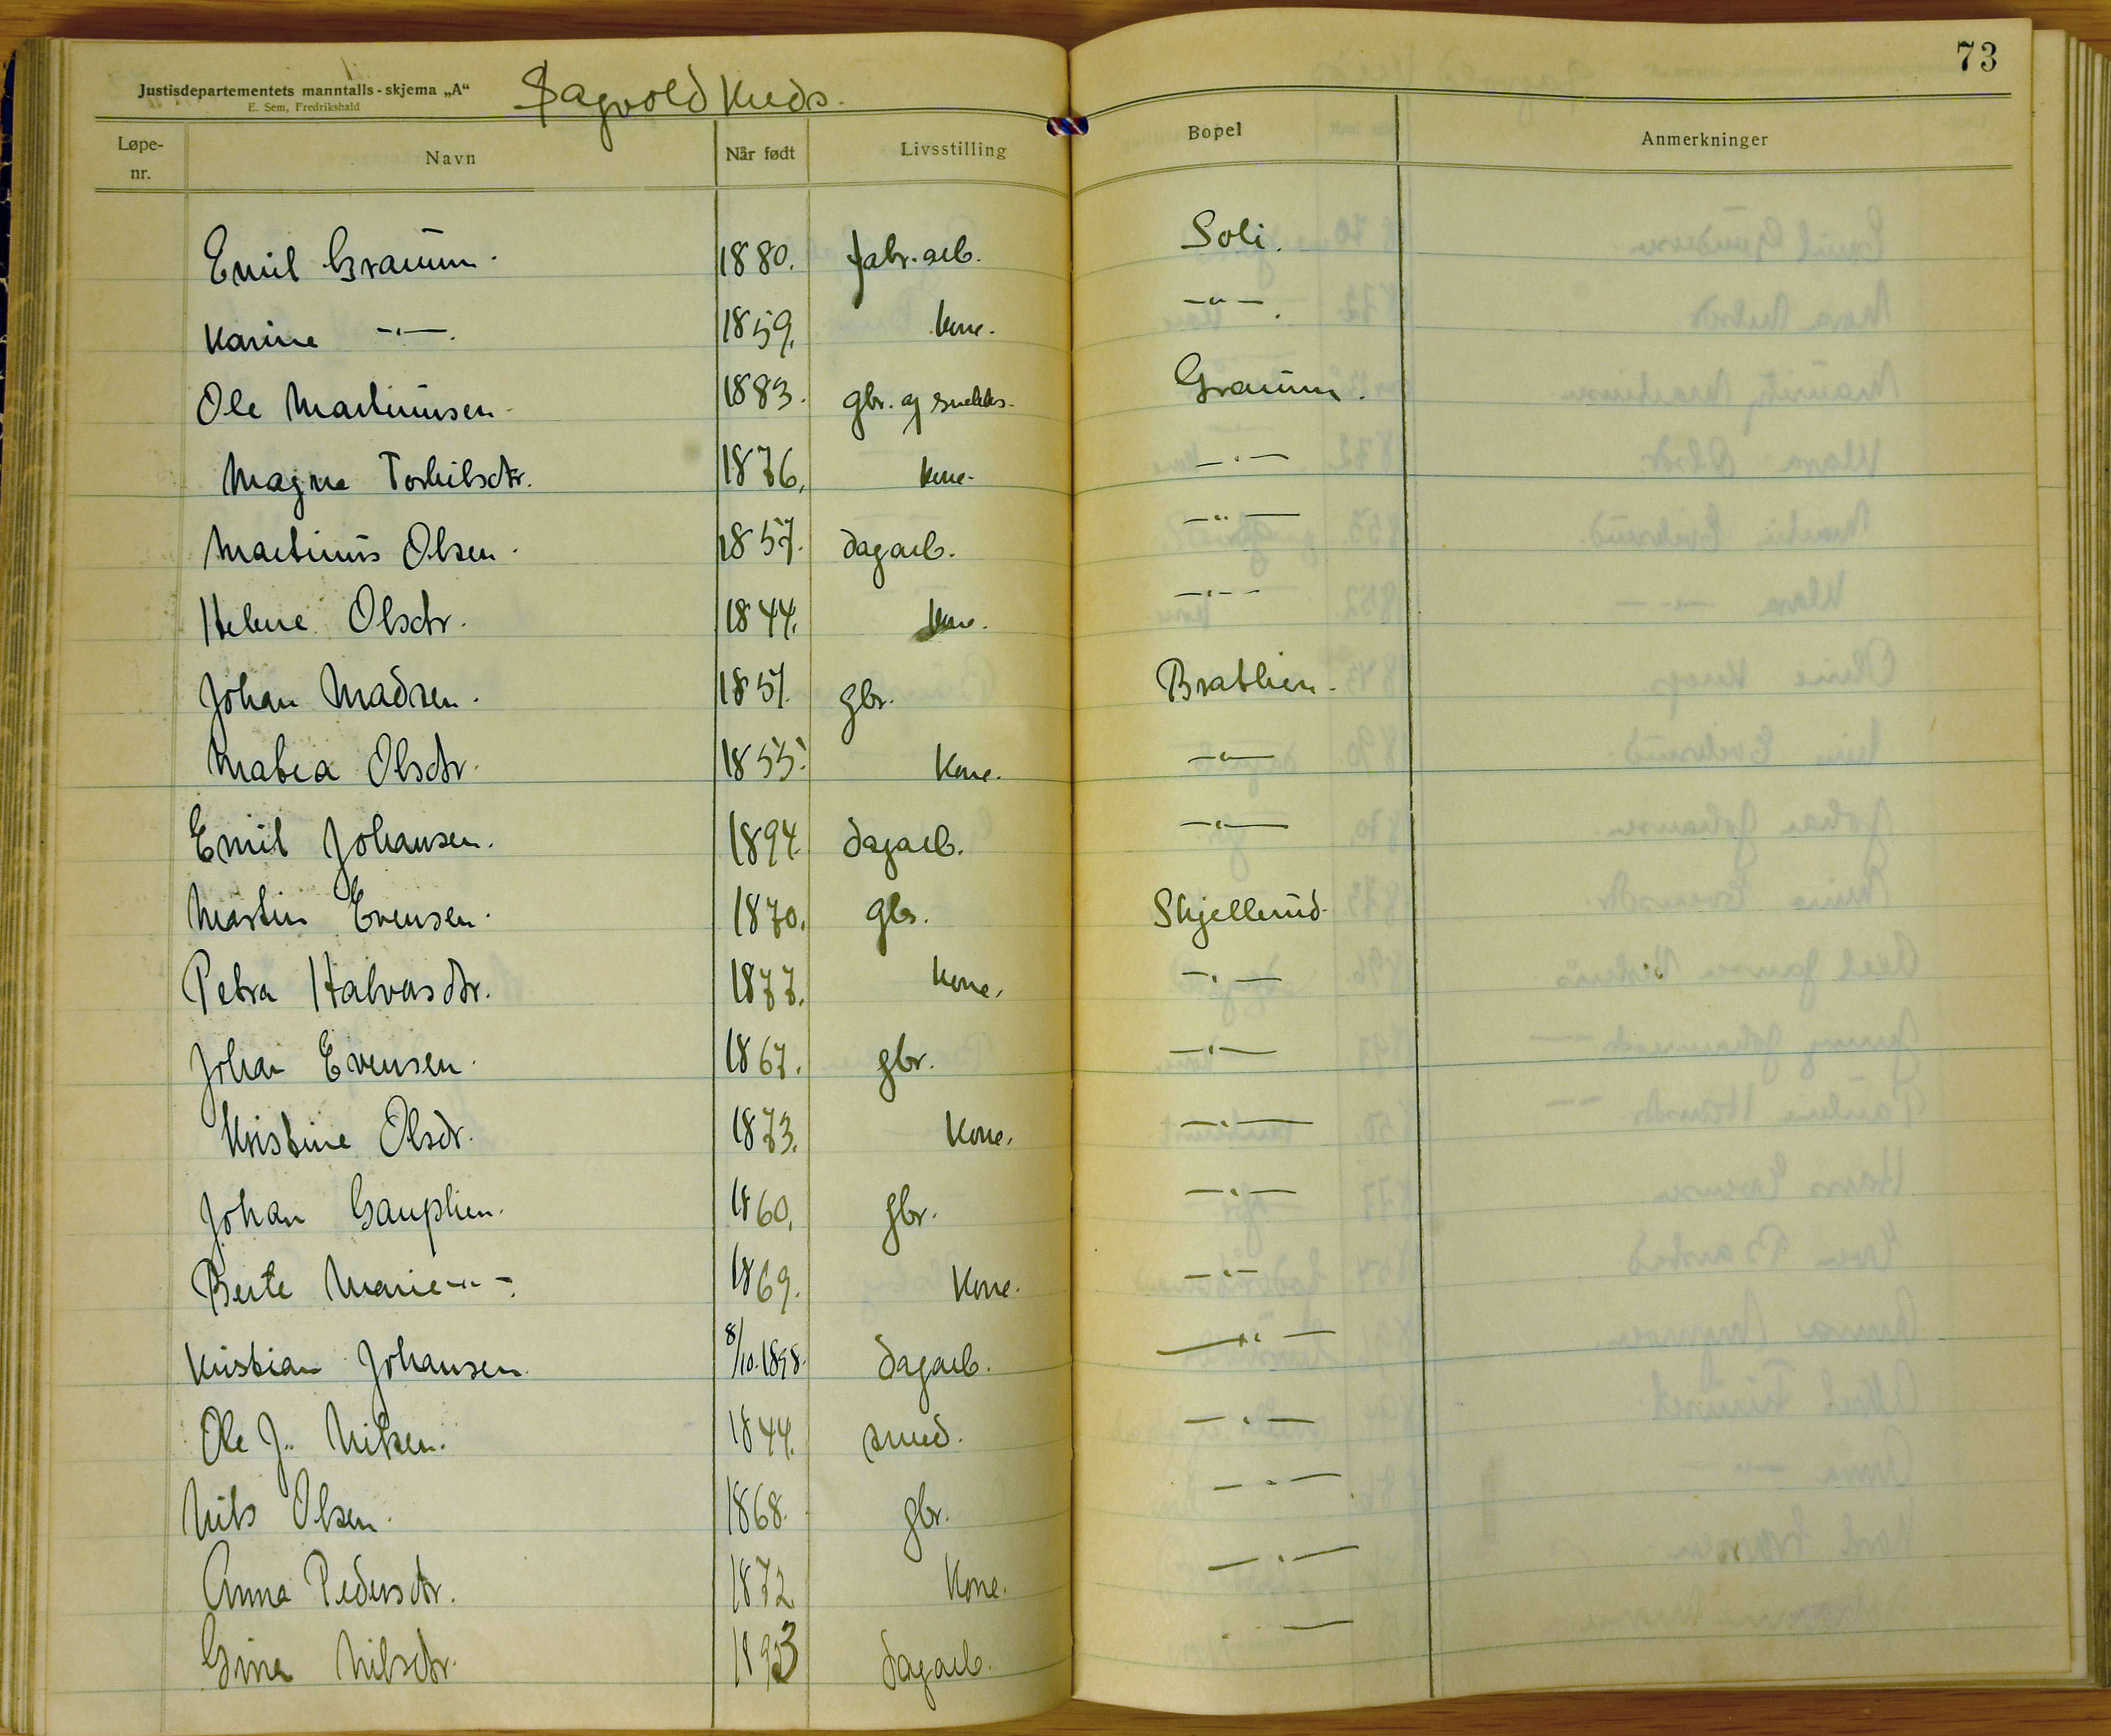 73
Justisdepartementets manntalls-skjema „A“
E. Sem, Fredrikshald
Sagvold Kreds.
Løpe-nr. Navn Når født Livsstilling Bopel Anmerkninger
Emil Graum. 1880. fabr. arb. Soli.
Karine -"-. 1859. kone. -"-.
Ole Martinusen. 1883. gbr. og snekker. Graum.
Magna Torkilsdtr. 1876. kone. -"-
Martinus Olsen. 1857. dagarb. -"-
Helene Olsdtr. 1844. kone. -"-
Johan Madsen. 1857. gbr. Brathen.
Mabea Olsdtr. 1855. Kone. -"-
Emil Johansen. 1894. dagarb. -"-
Martin Evensen. 1870. gbr. Skjellerud.
Petra Halvorsdtr. 1877. Kone. -"-
Johan Evensen. 1867. gbr. -"-
Kristine Olsdr. 1873. Kone. -"-
Johan Gauplien. 1860. gbr. -"-
Berte Marie -"-. 1869. Kone. -"-
Kristian Johansen. 8/10.1898. dagarb. -"-
Ole J. Nilsen. 1844. smed. -"-
Nils Olsen. 1868. gbr. -"-
Anna Pedersdtr. 1872 Kone. -"-
Gina Nilsdtr. 1893 dagarb. -"-